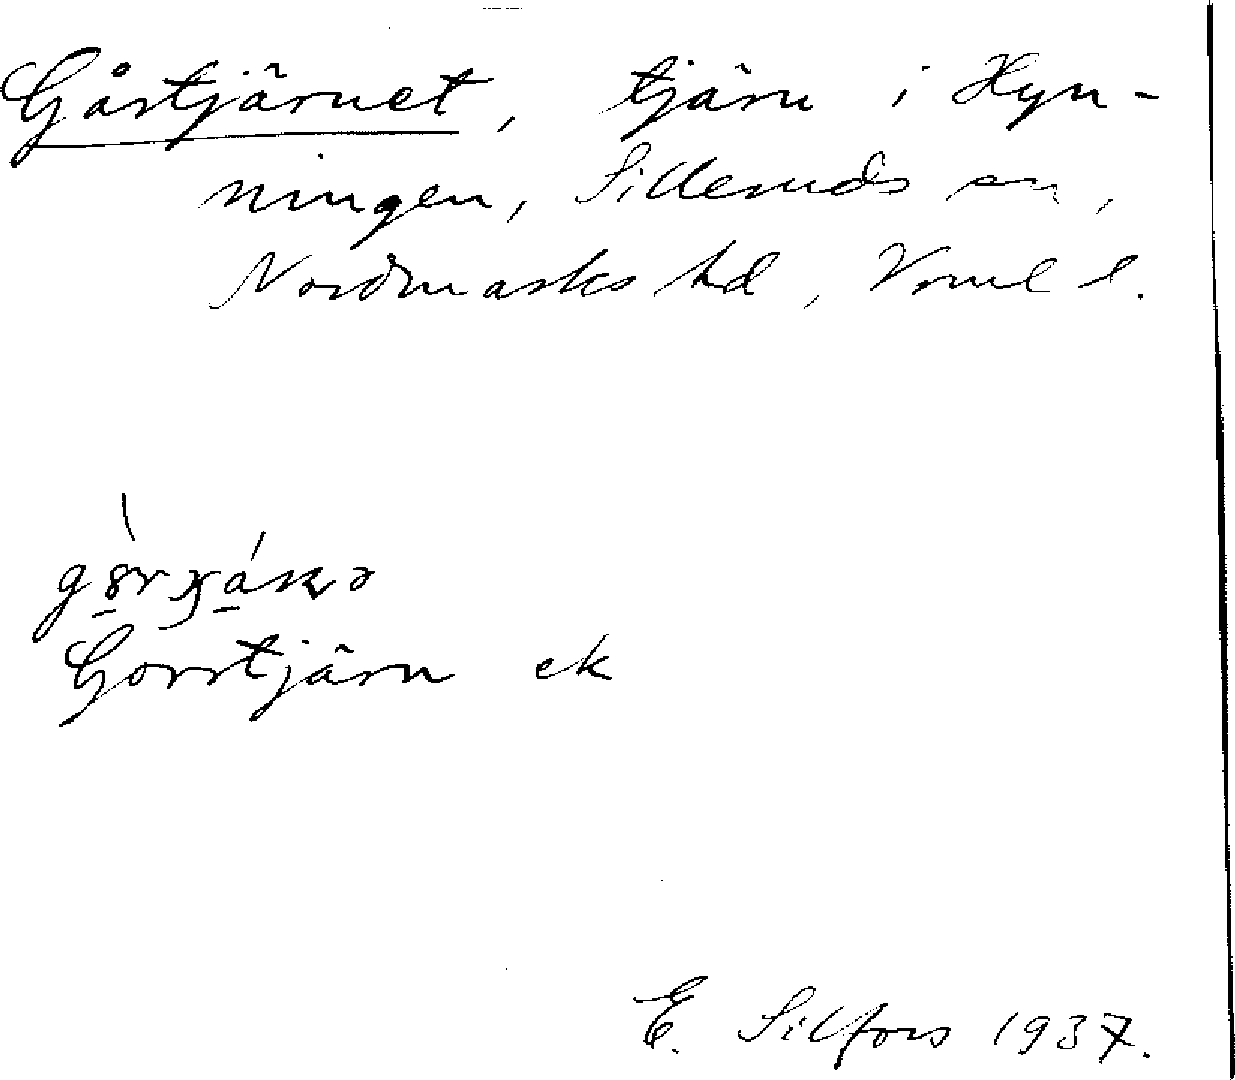 Gåstjärnet, tjärn i Hyn-
ningen, Silleruds sn,
Nordmarks hd, Vrml l.
Gorrtjärn ek
E. Silfors 1937.